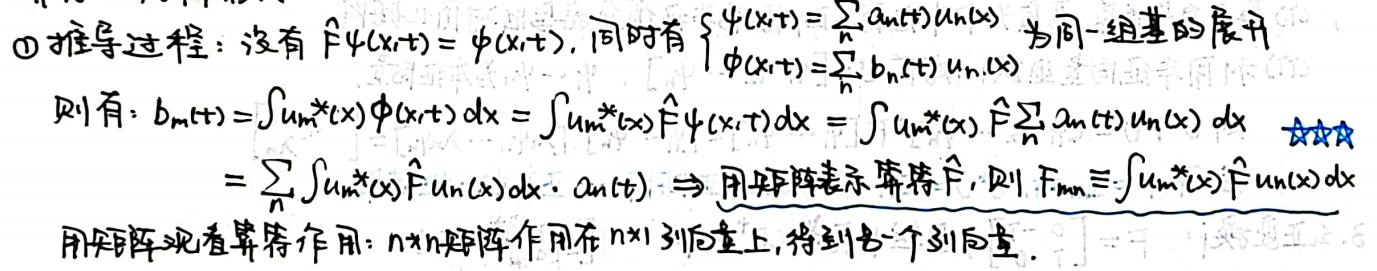 ①推导过程：设有 F̂ψ(x,t) = φ(x,t), 同时有 { ψ(x,t) = ∑ₙ aₙ(t)uₙ(x)
φ(x,t) = ∑ₙ bₙ(t)uₙ(x) 为同一组基的展开
则有：bₘ(t) = ∫uₘ*(x)φ(x,t)dx = ∫uₘ*(x)F̂ψ(x,t)dx = ∫uₘ*(x)F̂∑ₙ aₙ(t)uₙ(x)dx ☆☆☆
= ∑ₙ ∫uₘ*(x)F̂uₙ(x)dx · aₙ(t) ⇒ 用矩阵表示算符F̂, 则 Fₘₙ ≡ ∫uₘ*(x)F̂uₙ(x)dx
用矩阵观看算符作用：n×n矩阵作用在n×1列向量上,得到另一个列向量.